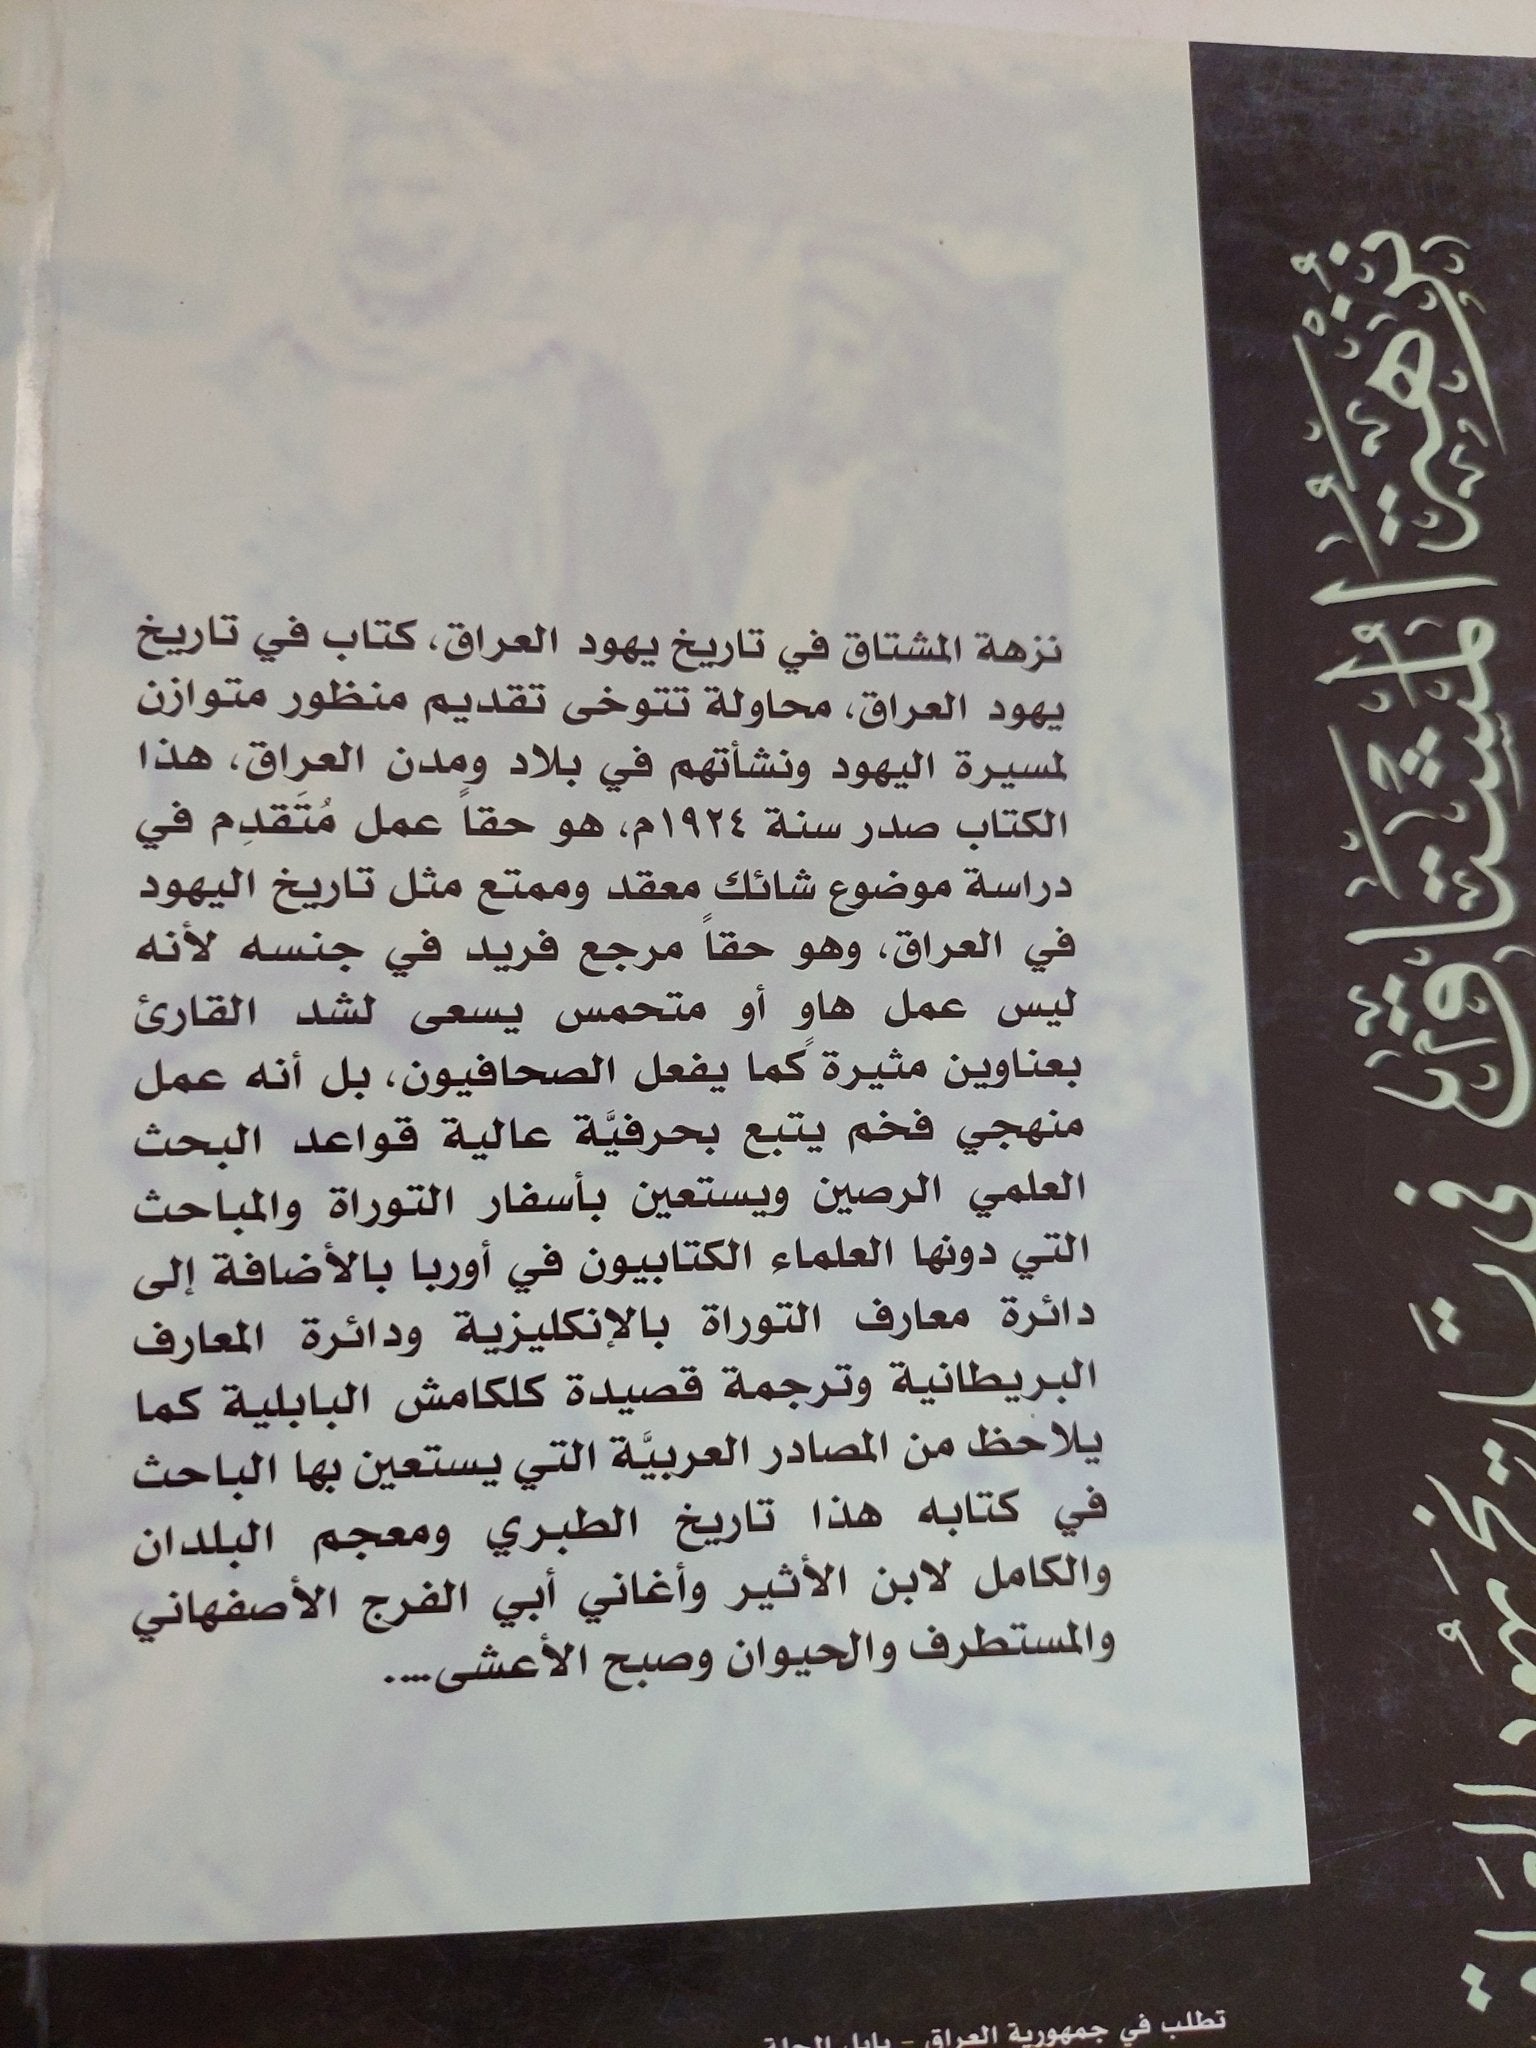 نزهة المشتاق في تاريخ يهود العراق، كتاب في تاريخ
يهود العراق، محاولة تتوخى تقديم منظور متوازن
لمسيرة اليهود ونشأتهم في بلاد ومدن العراق، هذا
الكتاب صدر سنة ١٩٢٤م، هو حقاً عمل مُتَقدِم في
دراسة موضوع شائك معقد وممتع مثل تاريخ اليهود
في العراق، وهو حقاً مرجع فريد في جنسه لأنه
ليس عمل هاوٍ أو متحمس يسعى لشد القارئ
بعناوين مثيرة كما يفعل الصحافيون، بل أنه عمل
منهجي فخم يتبع بحرفيَّة عالية قواعد البحث
العلمي الرصين ويستعين بأسفار التوراة والمباحث
التي دونها العلماء الكتابيون في أوربا بالأضافة إلى
دائرة معارف التوراة بالإنكليزية ودائرة المعارف
البريطانية وترجمة قصيدة كلكامش البابلية كما
يلاحظ من المصادر العربيَّة التي يستعين بها الباحث
في كتابه هذا تاريخ الطبري ومعجم البلدان
والكامل لابن الأثير وأغاني أبي الفرج الأصفهاني
والمستطرف والحيوان وصبح الأعشى....
نُزْهَة المُشْتَاق في تَاريخ يَهُود العراق
تطلب في جمهورية العراق - بابل الحلة